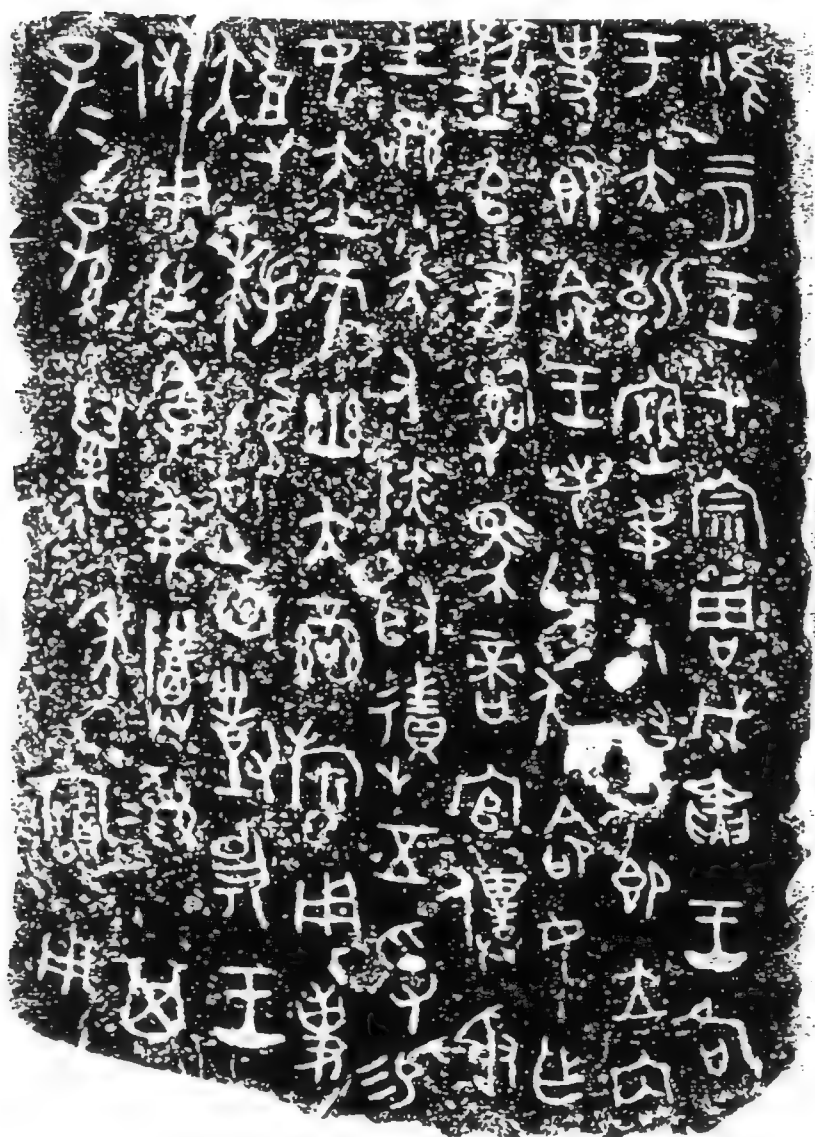 隹三月王才宗周戊寅王各
于大朝密叔右趞即立内
史即命王若曰趞命女乍
豳𠂤冢𤔲馬啻官僕射
士訊小大又𠳵取徵五寽易
女赤巿幽亢䜌旂用事
趞拜𩒨首對揚王
休用乍季姜尊彝其
子子孫孫萬年寶用